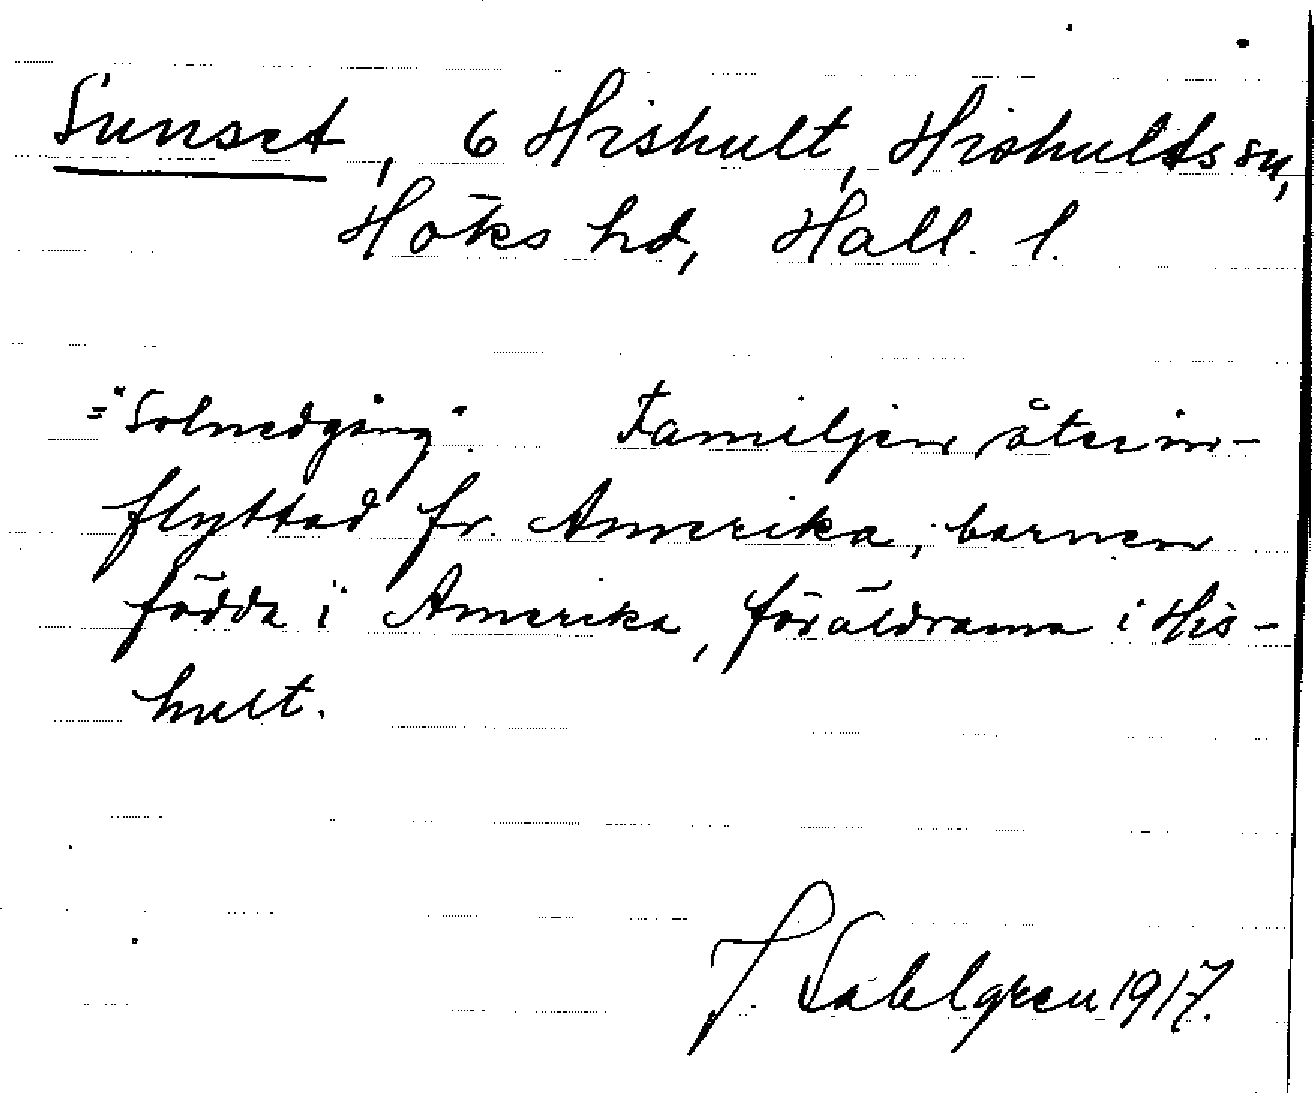 Sunset, 6 Hishult, Hishults sn,
Höks hd, Hall. l.
="Solnedgång". Familjen återin-
flyttad fr. Amerika; barnen
födda i Amerika, föräldrarna i His-
hult.
J. Sahlgren 1917.